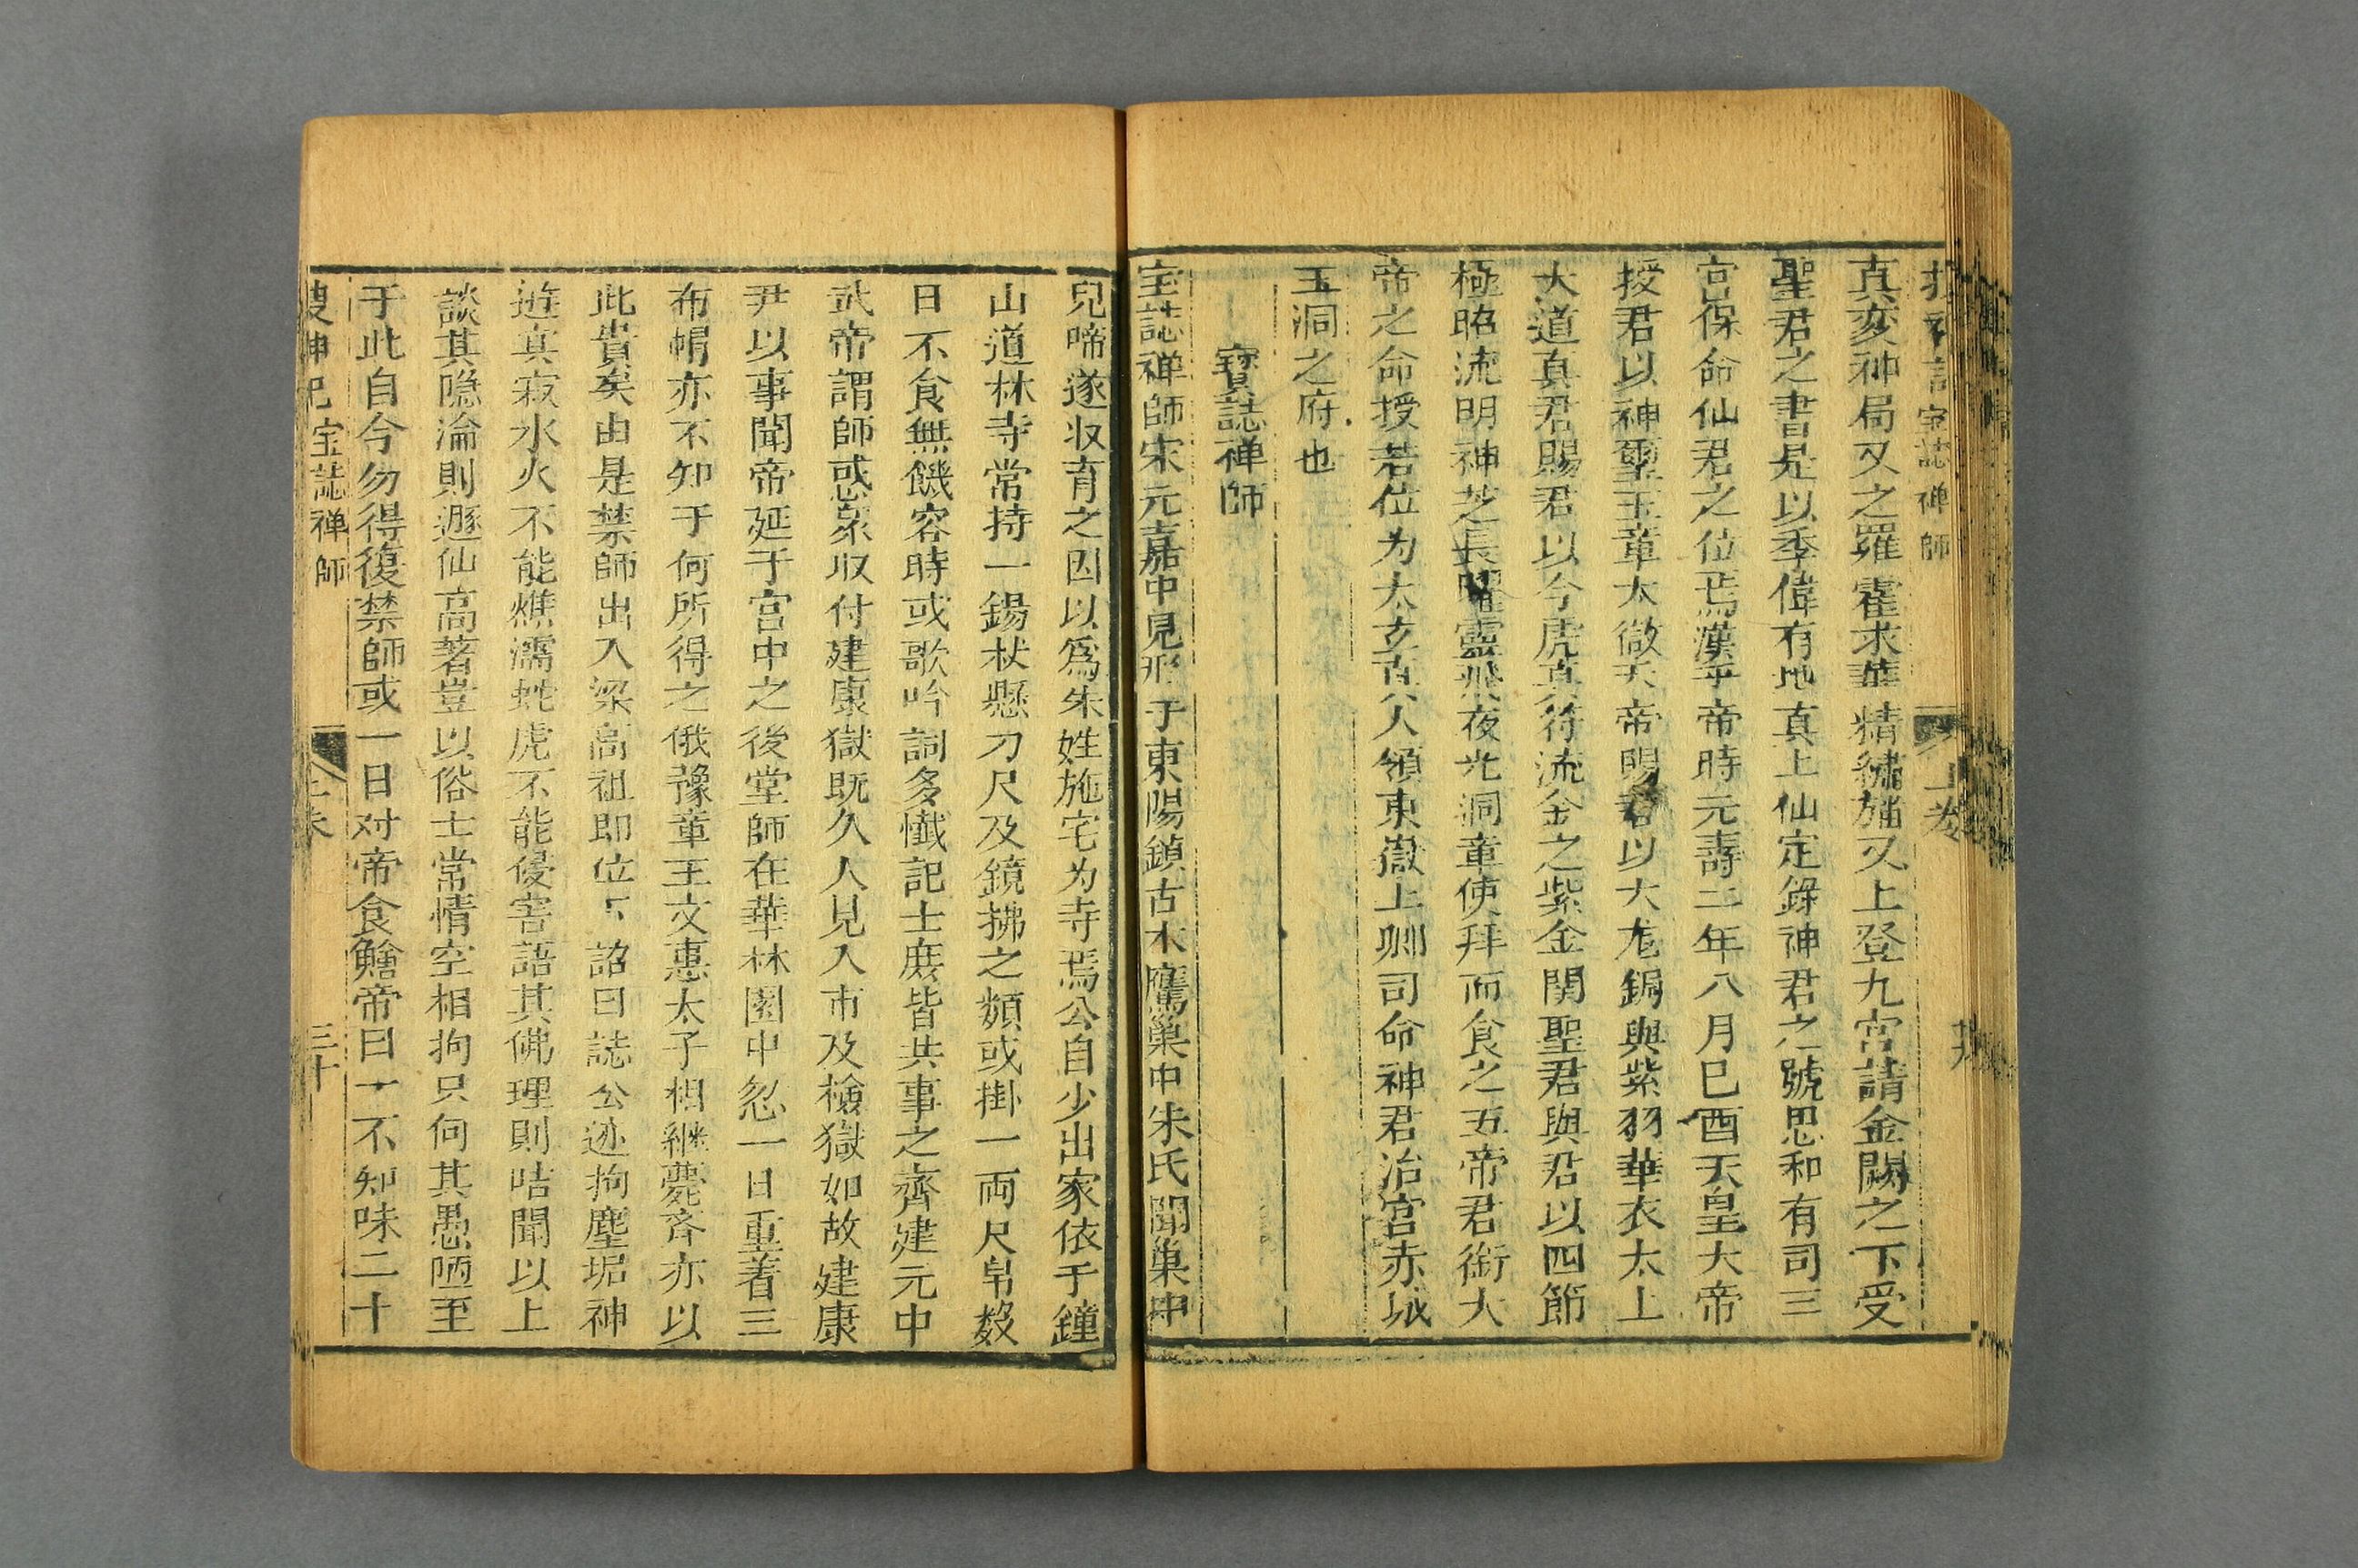 宝誌禅師
上卷
真変神局又之羅霍求華精繡旛又上登九宮請金闕之下受
聖君之書是以季偉有地真上仙定錄神君之號思和有司三
宮保命仙君之位焉漢平帝時元壽二年八月巳酉天皇大帝
授君以神璽玉章太微天帝賜君以大尨鋦與紫羽華衣太上
大道真君賜君以今虎真符流金之紫金関聖君與君以四節
極昭流明神芝長曜靈飛夜光洞章使拜而食之五帝君銜大
帝之命授君位为太玄真人領東嶽上卿司命神君治宮赤城
玉洞之府也
寶誌禅師
宝誌禅師宋元嘉中見形于東陽鎮古木鷹巢中朱氏聞巢中
兒啼遂収育之因以爲朱姓施宅为寺焉公自少出家依于鐘
山道林寺常持一錫杖懸刀尺及鏡拂之類或掛一両尺帛数
日不食無饑容時或歌吟詞多懴記士庶皆共事之齊建元中
武帝謂師惑衆収付建康獄既久人見入市及檢獄如故建康
尹以事聞帝延于宮中之後堂師在華林園中忽一日重着三
布帽亦不知于何所得之俄豫章王文惠太子相継薨斉亦以
此貴矣由是禁師出入梁高祖即位下詔曰誌公迹拘塵垢神
遊寘寂水火不能燋濡蛇虎不能侵害語其佛理則咶聞以上
談其隐淪則遯仙高著豈以俗士常情空相拘只何其愚陋至
于此自今勿得復禁師或一日对帝食鱠帝曰一不知味二十
搜神記宝誌禅師
三十